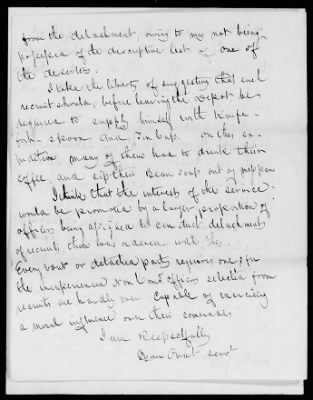 from the detachment, owing to my not being
possessed of the descriptive list of one of
the deserters.
I take the liberty of suggesting that each
recruit should, before leaving the Depot be
required to supply himself with Knife
fork, spoon and Tin Cup. On this ex-
pedition many of them had to drink their
coffee, and sip their Bean soup out of
I think that the interests of the service
would be promoted by a larger proportion of
officers being assigned to conduct detachments
of recruits than was
Every boat or detached party requires one, for
the inexperienced Non Comd Officers selected from
recruits are hardly ever capable of exercising
a moral influence over their comrades
I am Respectfully
Your Obdt servt